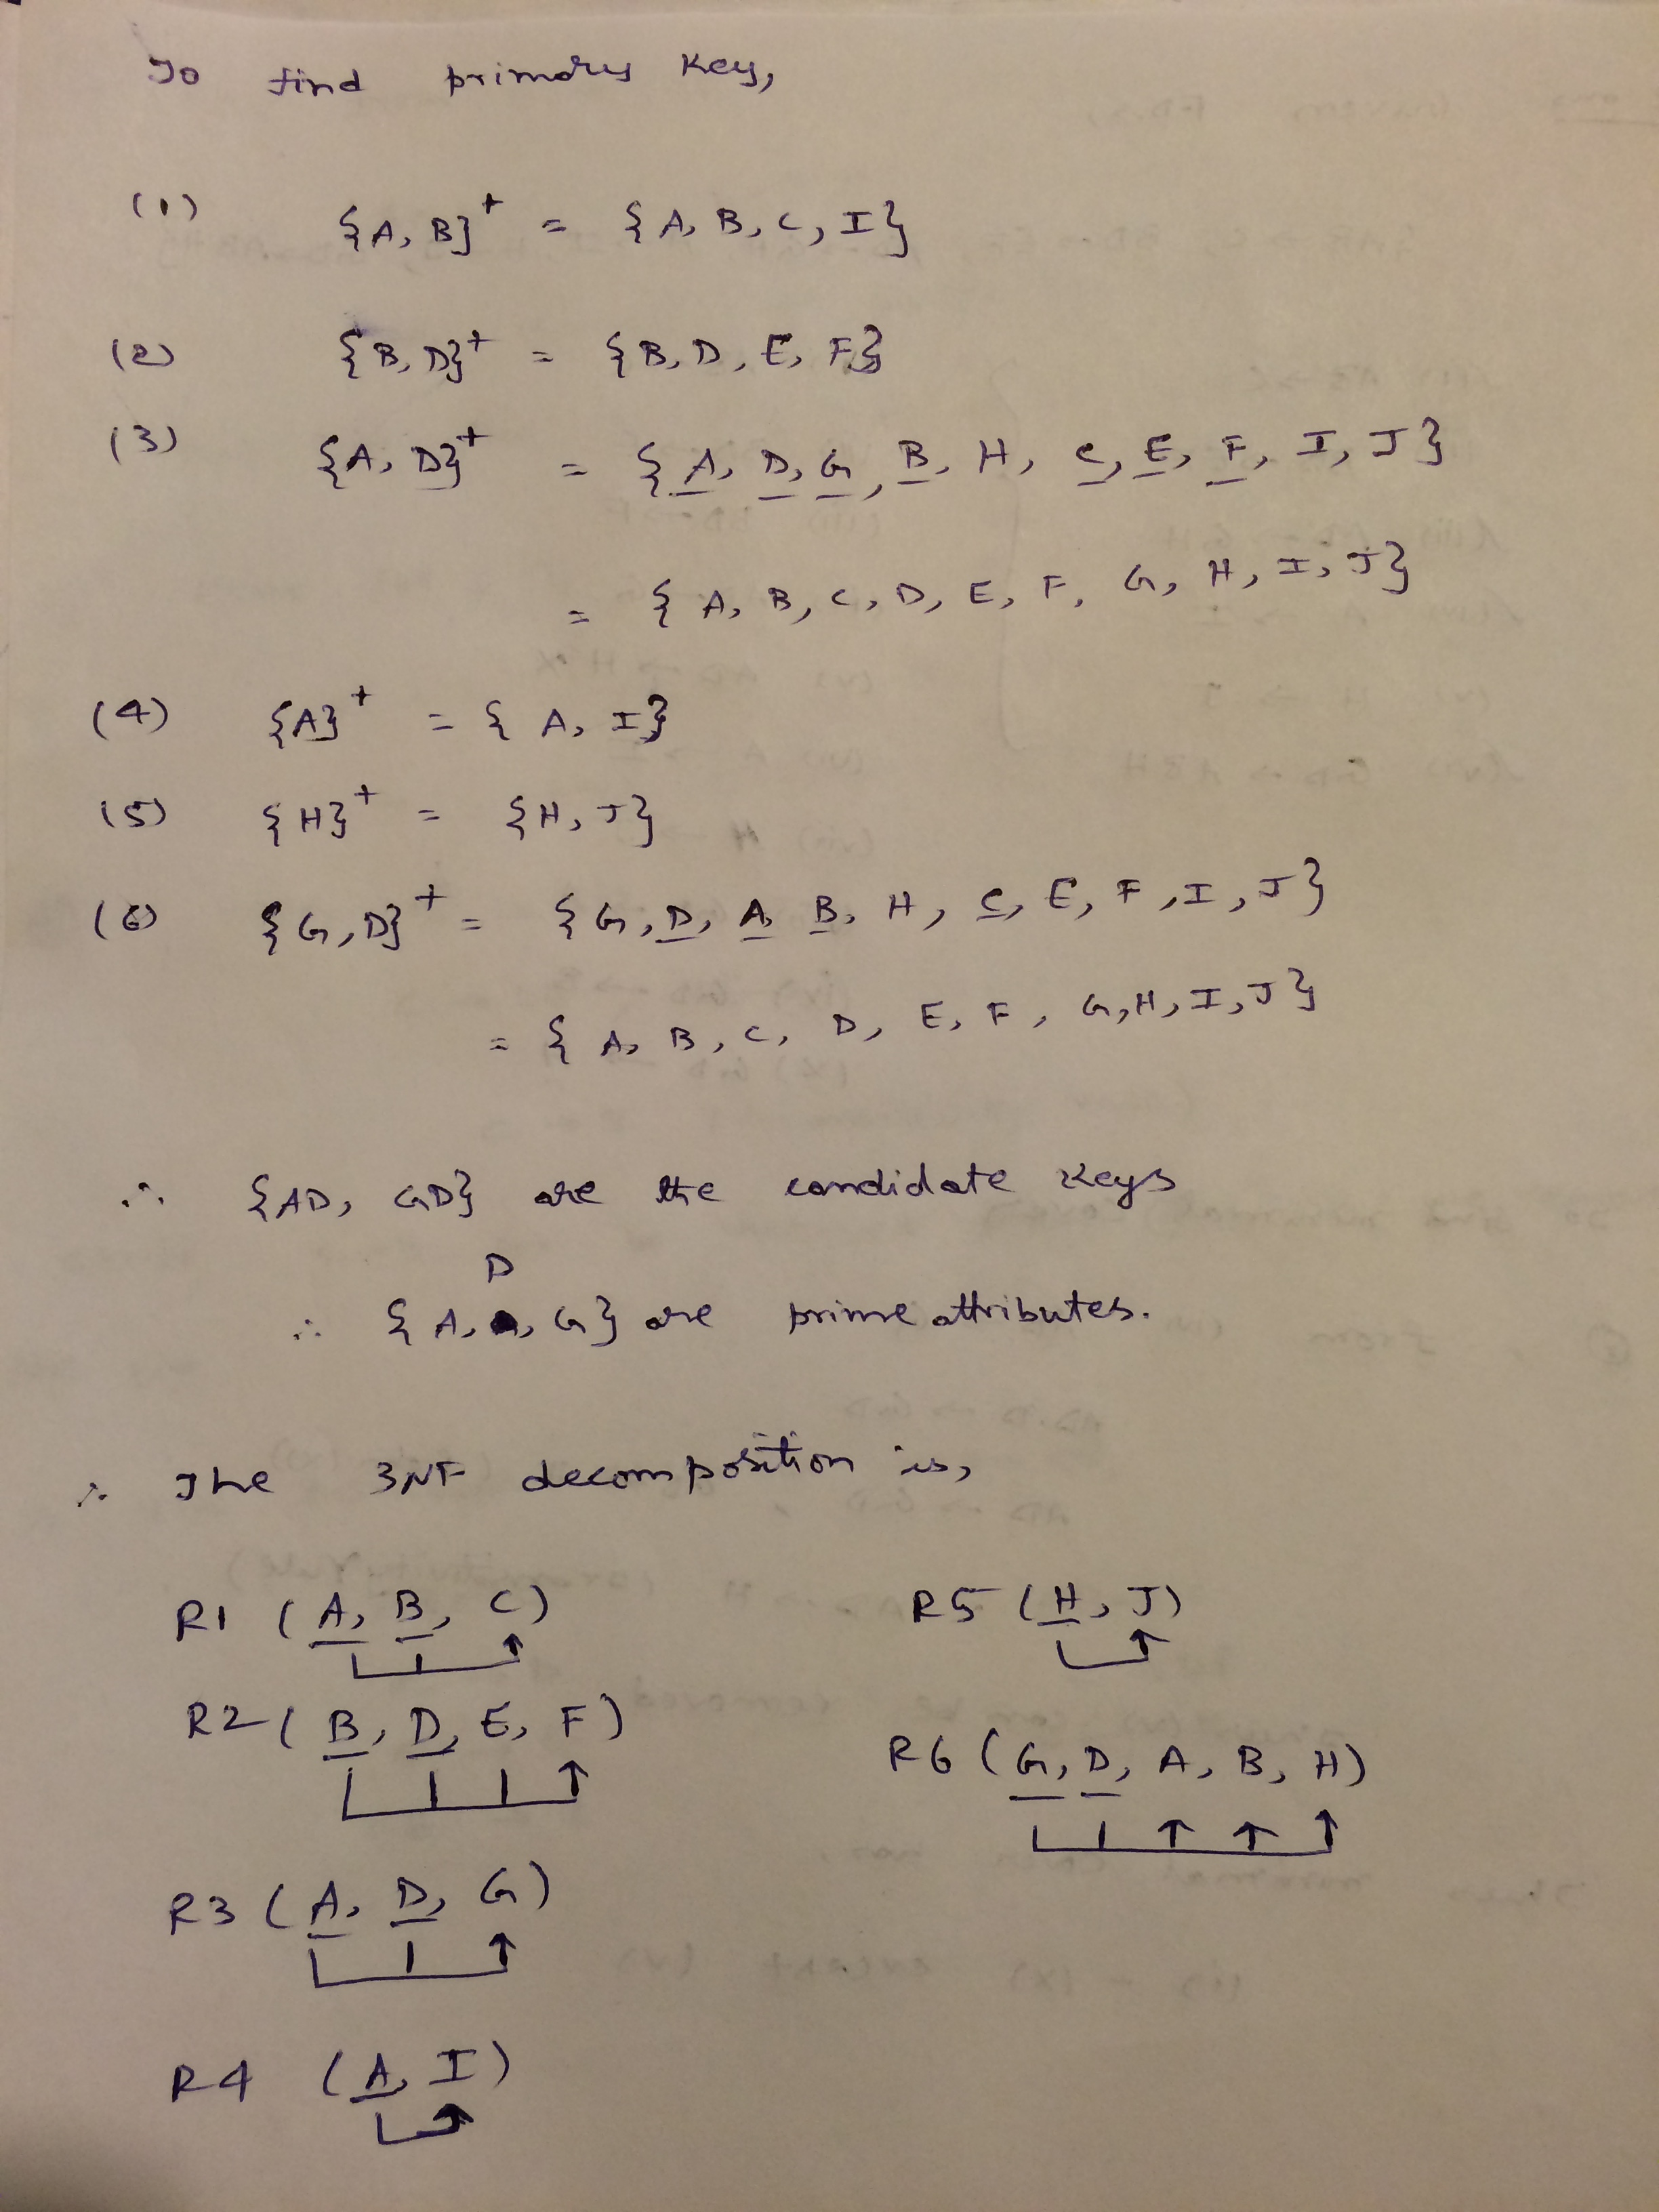 To find primary key,
(1) {A, B}+ = {A, B, C, I}
(2) {B, D}+ = {B, D, E, F}
(3) {A, D}+ = {A, D, G, B, H, C, E, F, I, J}
= {A, B, C, D, E, F, G, H, I, J}
(4) {A}+ = {A, I}
(5) {H}+ = {H, J}
(6) {G, D}+ = {G, D, A, B, H, C, E, F, I, J}
= {A, B, C, D, E, F, G, H, I, J}
∴ {AD, GD} are the candidate keys
D
∴ {A, , G} are prime attributes.
∴ The 3NF decomposition is,
R1 (A, B, C)
R2 (B, D, E, F)
R3 (A, D, G)
R4 (A, I)
R5 (H, J)
R6 (G, D, A, B, H)